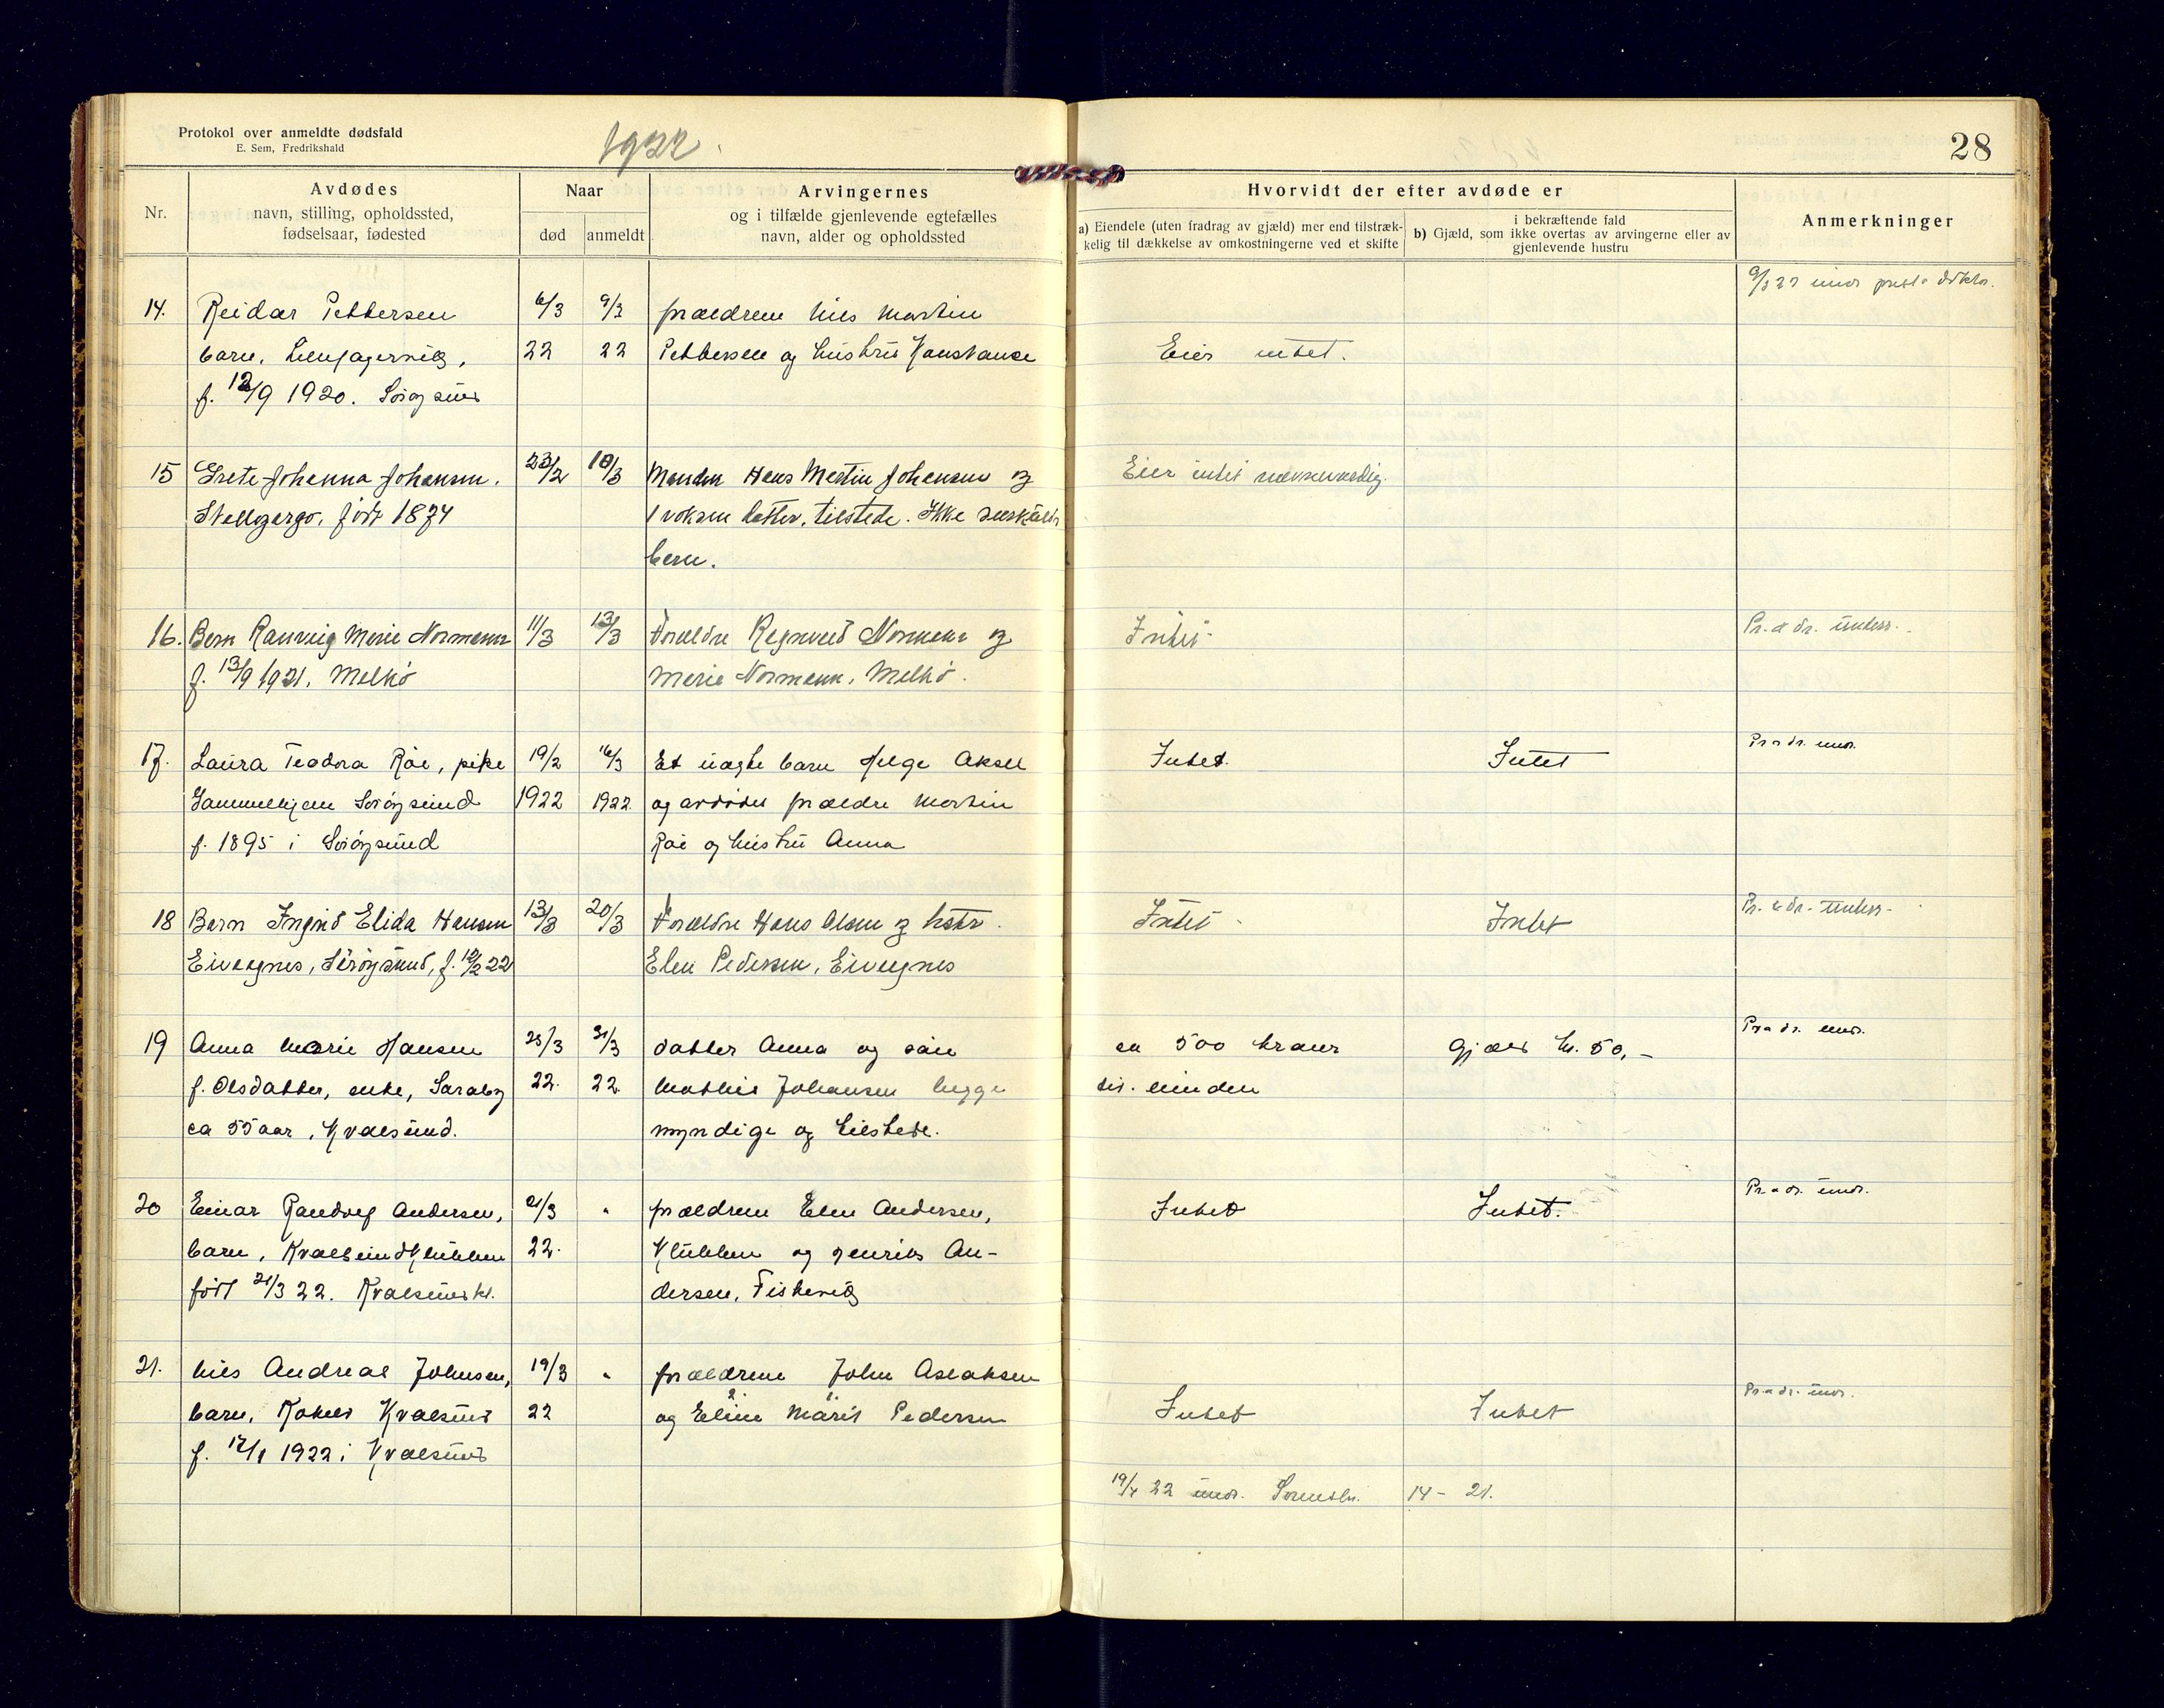 Protokol over anmeldte dødsfald
E. Sem, Fredrikshald
1922.
28
Nr.
Avdødes
navn, stilling, opholdssted,
fødselsaar, fødested
Naar
død
anmeldt
Arvingernes
og i tilfælde gjenlevende egtefælles
navn, alder og opholdssted
Hvorvidt der efter avdøde er
a) Eiendele (uten fradrag av gjæld) mer end tilstræk-
kelig til dækkelse av omkostningerne ved et skifte
i bekræftende fald
b) Gjæld, som ikke overtas av arvingerne eller av
gjenlevende hustru
Anmerkninger
14. Reidar Pettersen 6/3 9/3 forældrene Nils Martin
barn, 22 22 Pettersen og hustru Konstanse Eier intet.
f. 12/9 1920.
15 Grete Johanna Johansen. 23/2 10/3 Manden Hans Martin Johansen og Eier intet
født 1874 1 voksen datter, tilstede. Ikke
barn.
16. Barn Ranveig Marie Normann 11/3 13/3 Forældre Ragnvald Normann og Intet Pr. & dr. underr.
f. 13/9 1921. Melkø Marie Normann, Melkø.
17. Laura Teodora Roe, pike 19/2 16/3 Et uægte barn Helge Aksel Intet. Intet Pr a dr. undr.
Sørøysund 1922 1922. og avdødes forældre Martin
f. 1895 i Sørøysund Roe og hustru Anna
18 Barn Ingrid Elida Hansen 13/3 20/3 Forældre Hans Olsen og hstr. Intet Intet Pr. & dr. underr.
Eivegnes, Sørøysund, f. 12/2 22 Elen Pedersen, Eivegnes
19 Anna Marie Hansen 25/3 31/3 datter Anna og søn ca 500 kroner Gjæld kr. 50,- Pr a dr. undr.
f. Olsdatter, enke, Saraby 22. 22. Mathis Johansen begge
ca 55 aar, Kvalsund. myndige og tilstede.
20 Einar Randvey Andersen, 21/3 " forældrene Elen Andersen, Intet Intet. Pr a dr. undr.
barn, Kvalsund Klubben 22. Klubben og Henrik An-
født 21/3 22. Kvalsund dersen, Fiskevåg
21. Nils Andreas Johnsen, 19/3 " forældrene John Aslaksen
barn, Kvalsund 22 og Eline Marit Pedersen Intet Intet Pr a dr. undr.
f. 17/1 1922 i Kvalsund
19/4 22 undr. Sorenskr. 14 - 21.